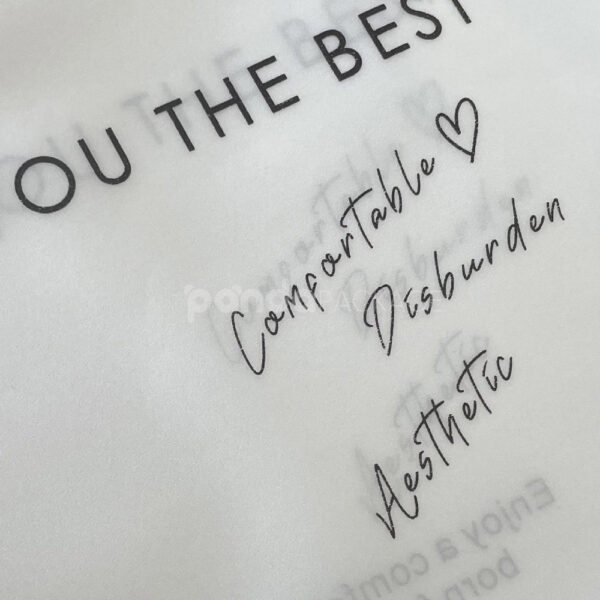 OU THE BEST
Comfortable
Disburden
Aesthetic
Enjoy a comf
born